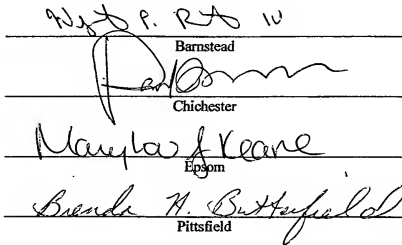 P. IV
Barnstead
Chichester
Marylou J Keane
Epsom
Brenda N. Butterfield
Pittsfield